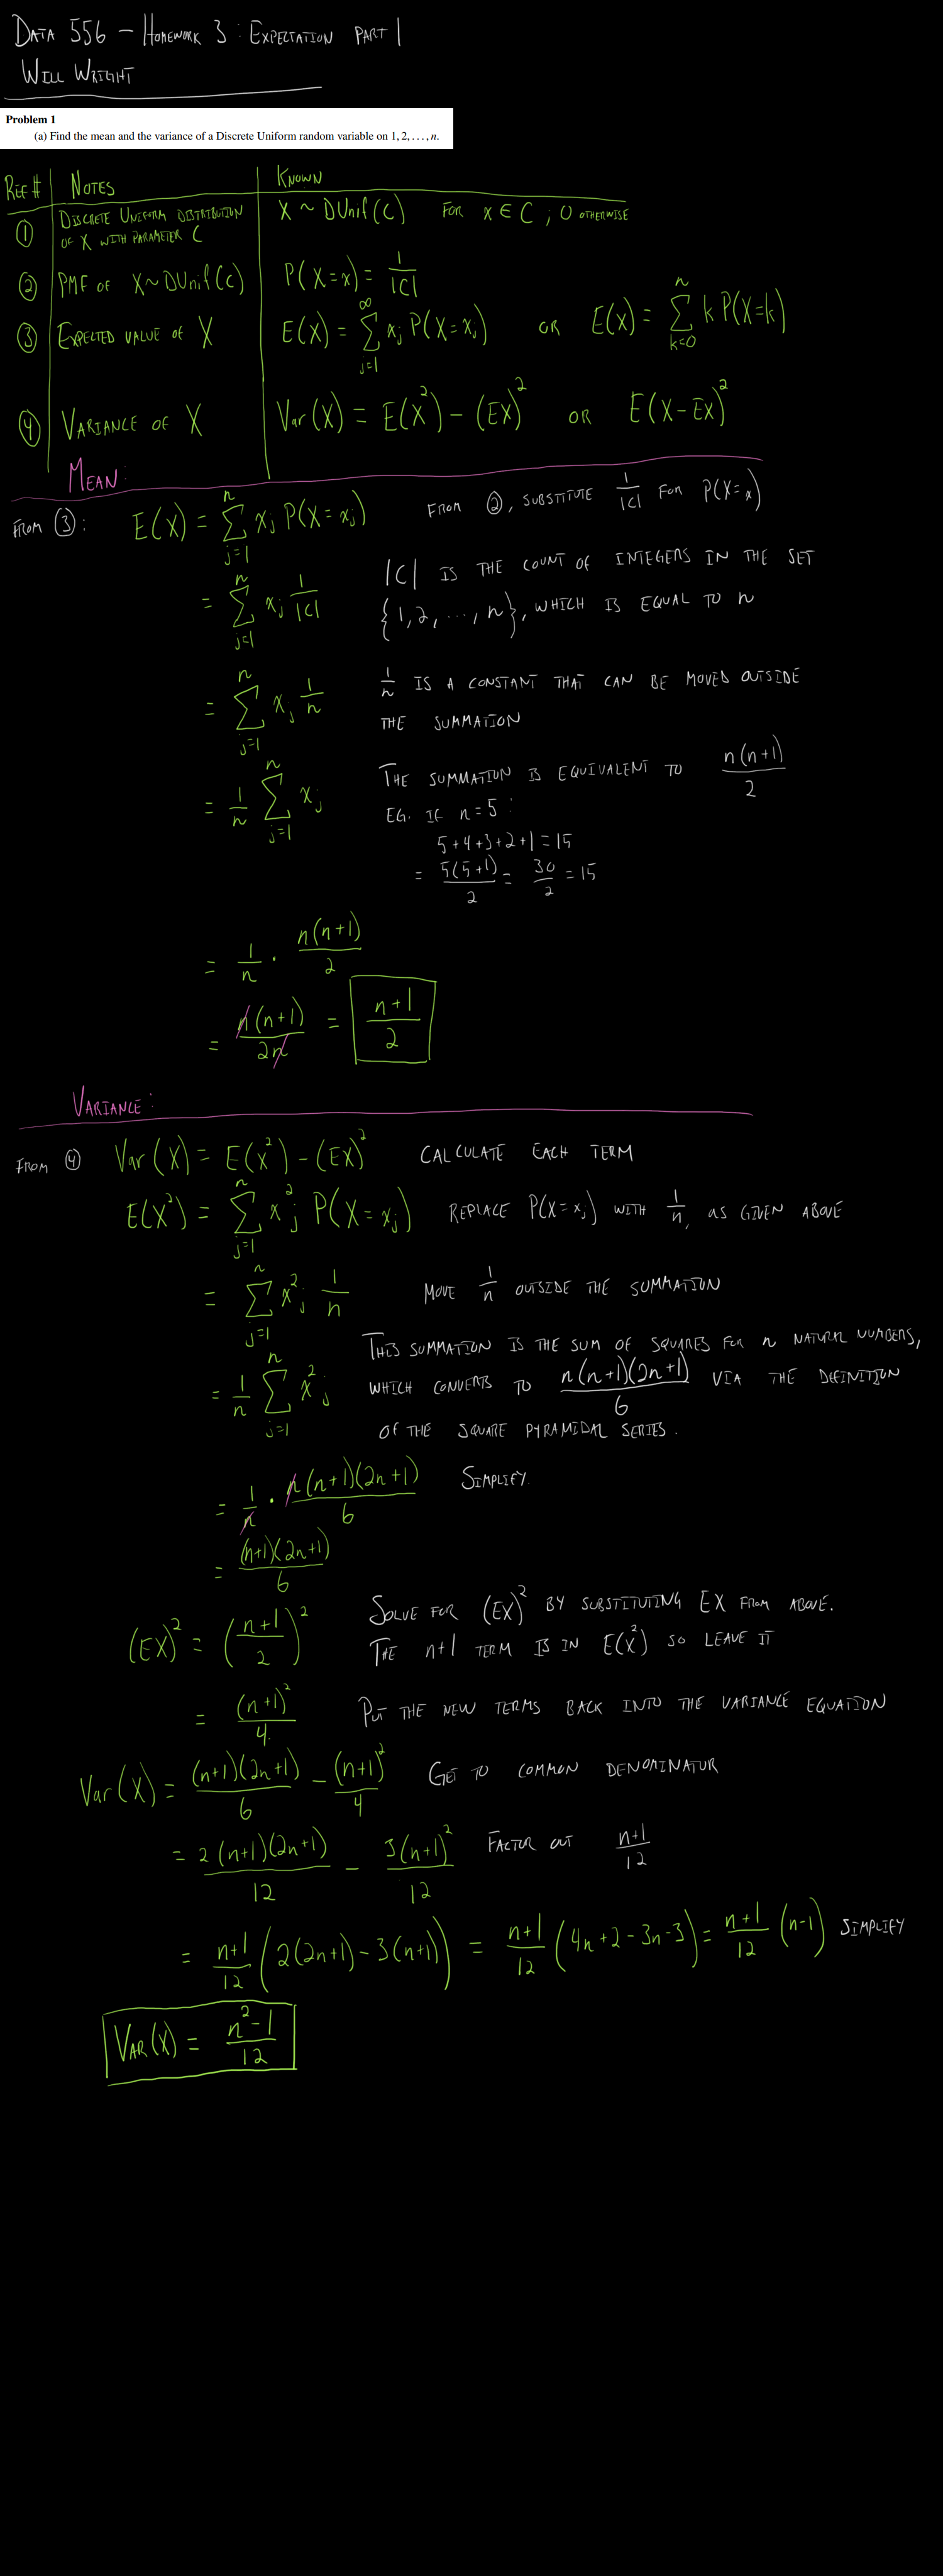 DATA 556 – HOMEWORK 3: EXPECTATION PART 1
WILL WRIGHT
Problem 1
(a) Find the mean and the variance of a Discrete Uniform random variable on 1, 2, . . . , n.
REF # NOTES KNOWN
① DISCRETE UNIFORM DISTRIBUTION OF X WITH PARAMETER C X ~ DUnif(C) FOR x ∈ C ; 0 OTHERWISE
② PMF OF X ~ DUnif(C) P(X=x) = 1/|C|
③ EXPECTED VALUE OF X E(X) = ∑_{j=1}^{∞} x_j P(X=x_j) OR E(X) = ∑_{k=0}^{n} k P(X=k)
④ VARIANCE OF X Var(X) = E(X²) – (EX)² OR E(X–EX)²
MEAN:
FROM ③: E(X) = ∑_{j=1}^{n} x_j P(X=x_j) FROM ②, SUBSTITUTE 1/|C| FOR P(X=x)
= ∑_{j=1}^{n} x_j 1/|C| |C| IS THE COUNT OF INTEGERS IN THE SET
{1,2, ..., n}, WHICH IS EQUAL TO n
= ∑_{j=1}^{n} x_j 1/n 1/n IS A CONSTANT THAT CAN BE MOVED OUTSIDE
THE SUMMATION
= 1/n ∑_{j=1}^{n} x_j THE SUMMATION IS EQUIVALENT TO n(n+1)/2
EG. IF n=5:
5+4+3+2+1=15
= 5(5+1)/2 = 30/2 = 15
= 1/n · n(n+1)/2
= n(n+1)/2n = n+1/2
VARIANCE:
FROM ④ Var(X) = E(X²) – (EX)² CALCULATE EACH TERM
E(X²) = ∑_{j=1}^{n} x²_j P(X=x_j) REPLACE P(X=x_j) WITH 1/n, AS GIVEN ABOVE
= ∑_{j=1}^{n} x²_j 1/n MOVE 1/n OUTSIDE THE SUMMATION
THIS SUMMATION IS THE SUM OF SQUARES FOR n NATURAL NUMBERS,
= 1/n ∑_{j=1}^{n} x²_j WHICH CONVERTS TO n(n+1)(2n+1)/6 VIA THE DEFINITION
OF THE SQUARE PYRAMIDAL SERIES.
= 1/n · n(n+1)(2n+1)/6 SIMPLIFY.
= (n+1)(2n+1)/6
(EX)² = (n+1/2)² SOLVE FOR (EX)² BY SUBSTITUTING EX FROM ABOVE.
THE n+1 TERM IS IN E(X²) SO LEAVE IT
= (n+1)²/4 PUT THE NEW TERMS BACK INTO THE VARIANCE EQUATION
Var(X) = (n+1)(2n+1)/6 – (n+1)²/4 GET TO COMMON DENOMINATOR
= 2(n+1)(2n+1)/12 – 3(n+1)²/12 FACTOR OUT n+1/12
= n+1/12 (2(2n+1)–3(n+1)) = n+1/12 (4n+2–3n–3) = n+1/12 (n–1) SIMPLIFY
VAR(X) = n²–1/12